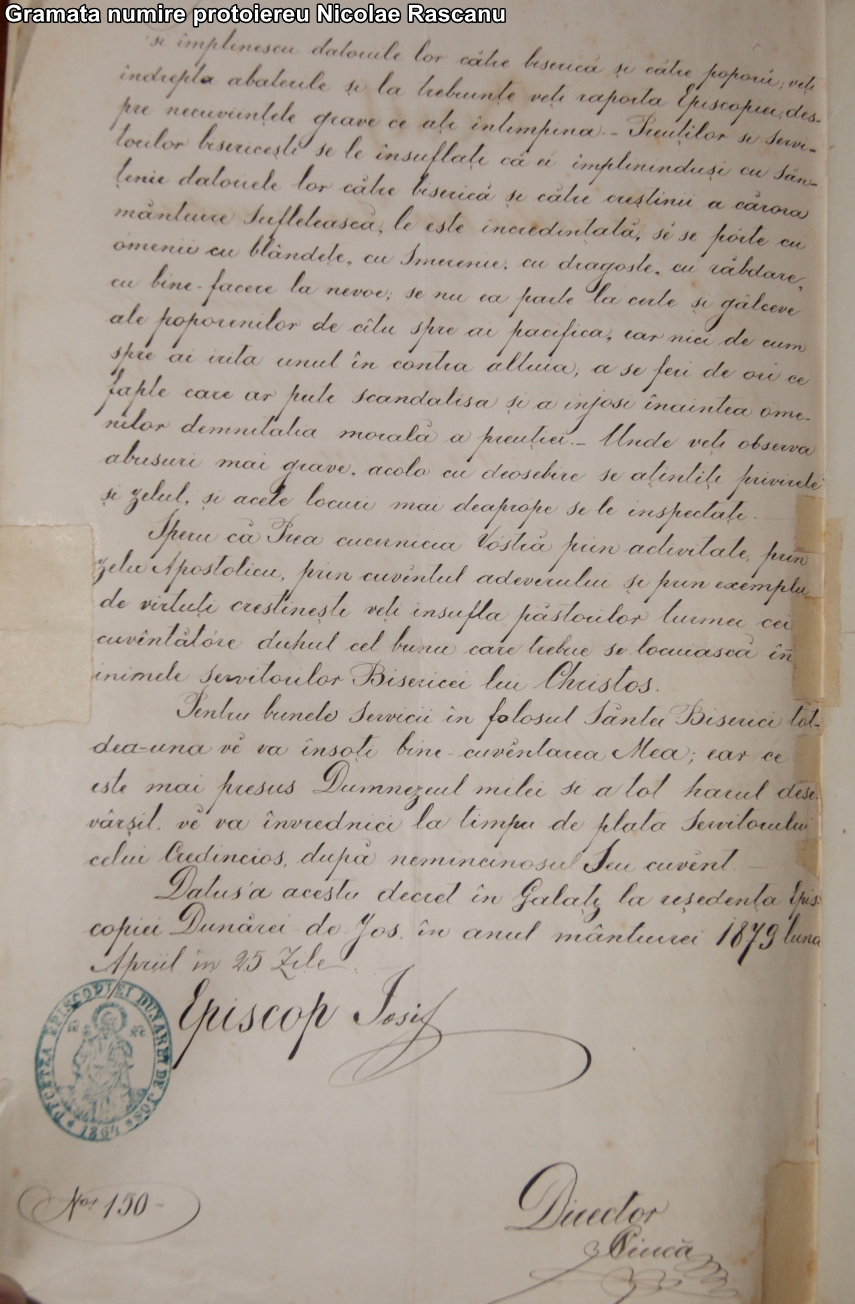 Gramata numire protoiereu Nicolae Rascanu
si împlinescu datoriile lor către biserică și către poporŭ; veți
îndrepta abaterile și la trebuințe veți raporta Episcopiei, des-
pre necuviințele grave ce ați întimpina. – Preuților si servi-
torilor bisericești se le însuflați că ei împlinindușĭ cu sân-
țenie datoriele lor către biserică și către creștinii a cărora
mântuire sufletească, le este încredințată, sĕ se pórte cu
omenie cu blândețe, cu smerenie, cu dragoste, cu răbdare,
cu bine-facere la nevoe; se nu ea parte la certe și gâlceve
ale poporenilor de cîtu spre ai pacifica, ear nici de cum
spre ai irita unul în contra altuia, a se feri de ori ce
fapte care ar pute scandalisa și a injosi înaintea ome-
nilor demnitatea morală a preuției. – Unde veți observa
abusuri mai grave, acolo cu deosebire se ațintiți privirele
și zelul, și acele locuri mai deaprope se le inspectați. –
Speru că Prea cucernicia Vostră prin activitate, prin
zelu Apostolicu, prin cuvîntul adeverului și prin exemplu
de virtuți creștinești veți insufla păstorilor turmei cei
cuvîntătóre duhul cel bunu care trebue se locuiască în
inimele servitorilor Bisericei lui Christos.
Pentru bunele servicii în folosul Sântei Biserici tot-
dea-una vĕ va însoți bine-cuvêntarea Mea; ear ce
este mai presus Dumnezeul milei si a tot harul dese-
vârșit, vĕ va învrednici la timpu de plata Servitorului
celui Credincios, după nemincinosul Seu cuvênt. –
Datus'a acestu decret în Galațĭ la reședența Epis-
copiei Dunărei de Jos, în anul mântuirei 1879 luna
Aprĭil în 25 Zile.
Episcop Iosif
PECETEA EPISCOPIEI DUNAREI DE JOS
Nor 150 –
Director
Ciucă